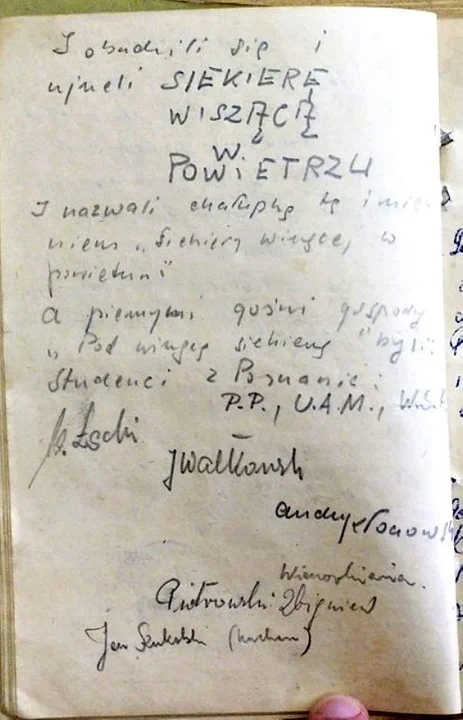 I obudzili się i
ujrzeli SIEKIERĘ
WISZĄCĄ
W
POWIETRZU
I nazwali chałupkę tę imie
niem „Siekiery wiszącej w
powietrzu".
A pierwszymi gośćmi gospody
„Pod wiszącą siekierą" byli:
Studenci z Poznania:
P.P., U.A.M.,
JWałkowski
Piotrowski Zbigniew
Jan